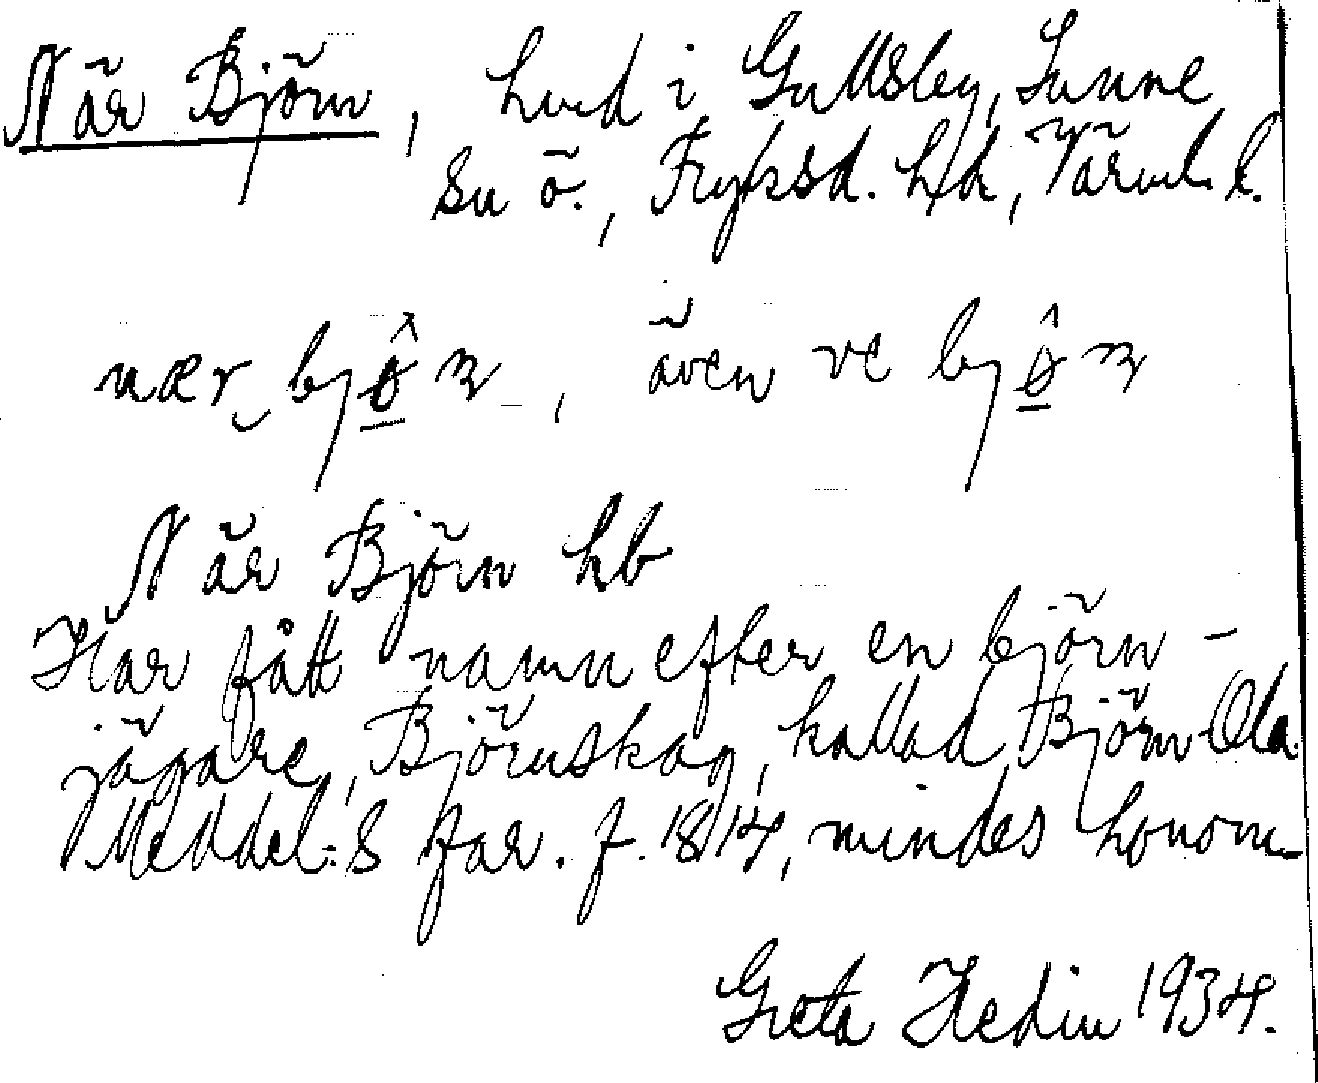 När Björn, hmd i Gullsby, Sunne
sn ö., Fryksd. hd, Värml. l.
nær byô̱n, även ve byô̱n
När Björn hb
Har fått namn efter en björn-
jägare, Björnskog, kallad Björn-Ola.
Meddel:s far. f. 1814, mindes honom.
Greta Hedin 1934.